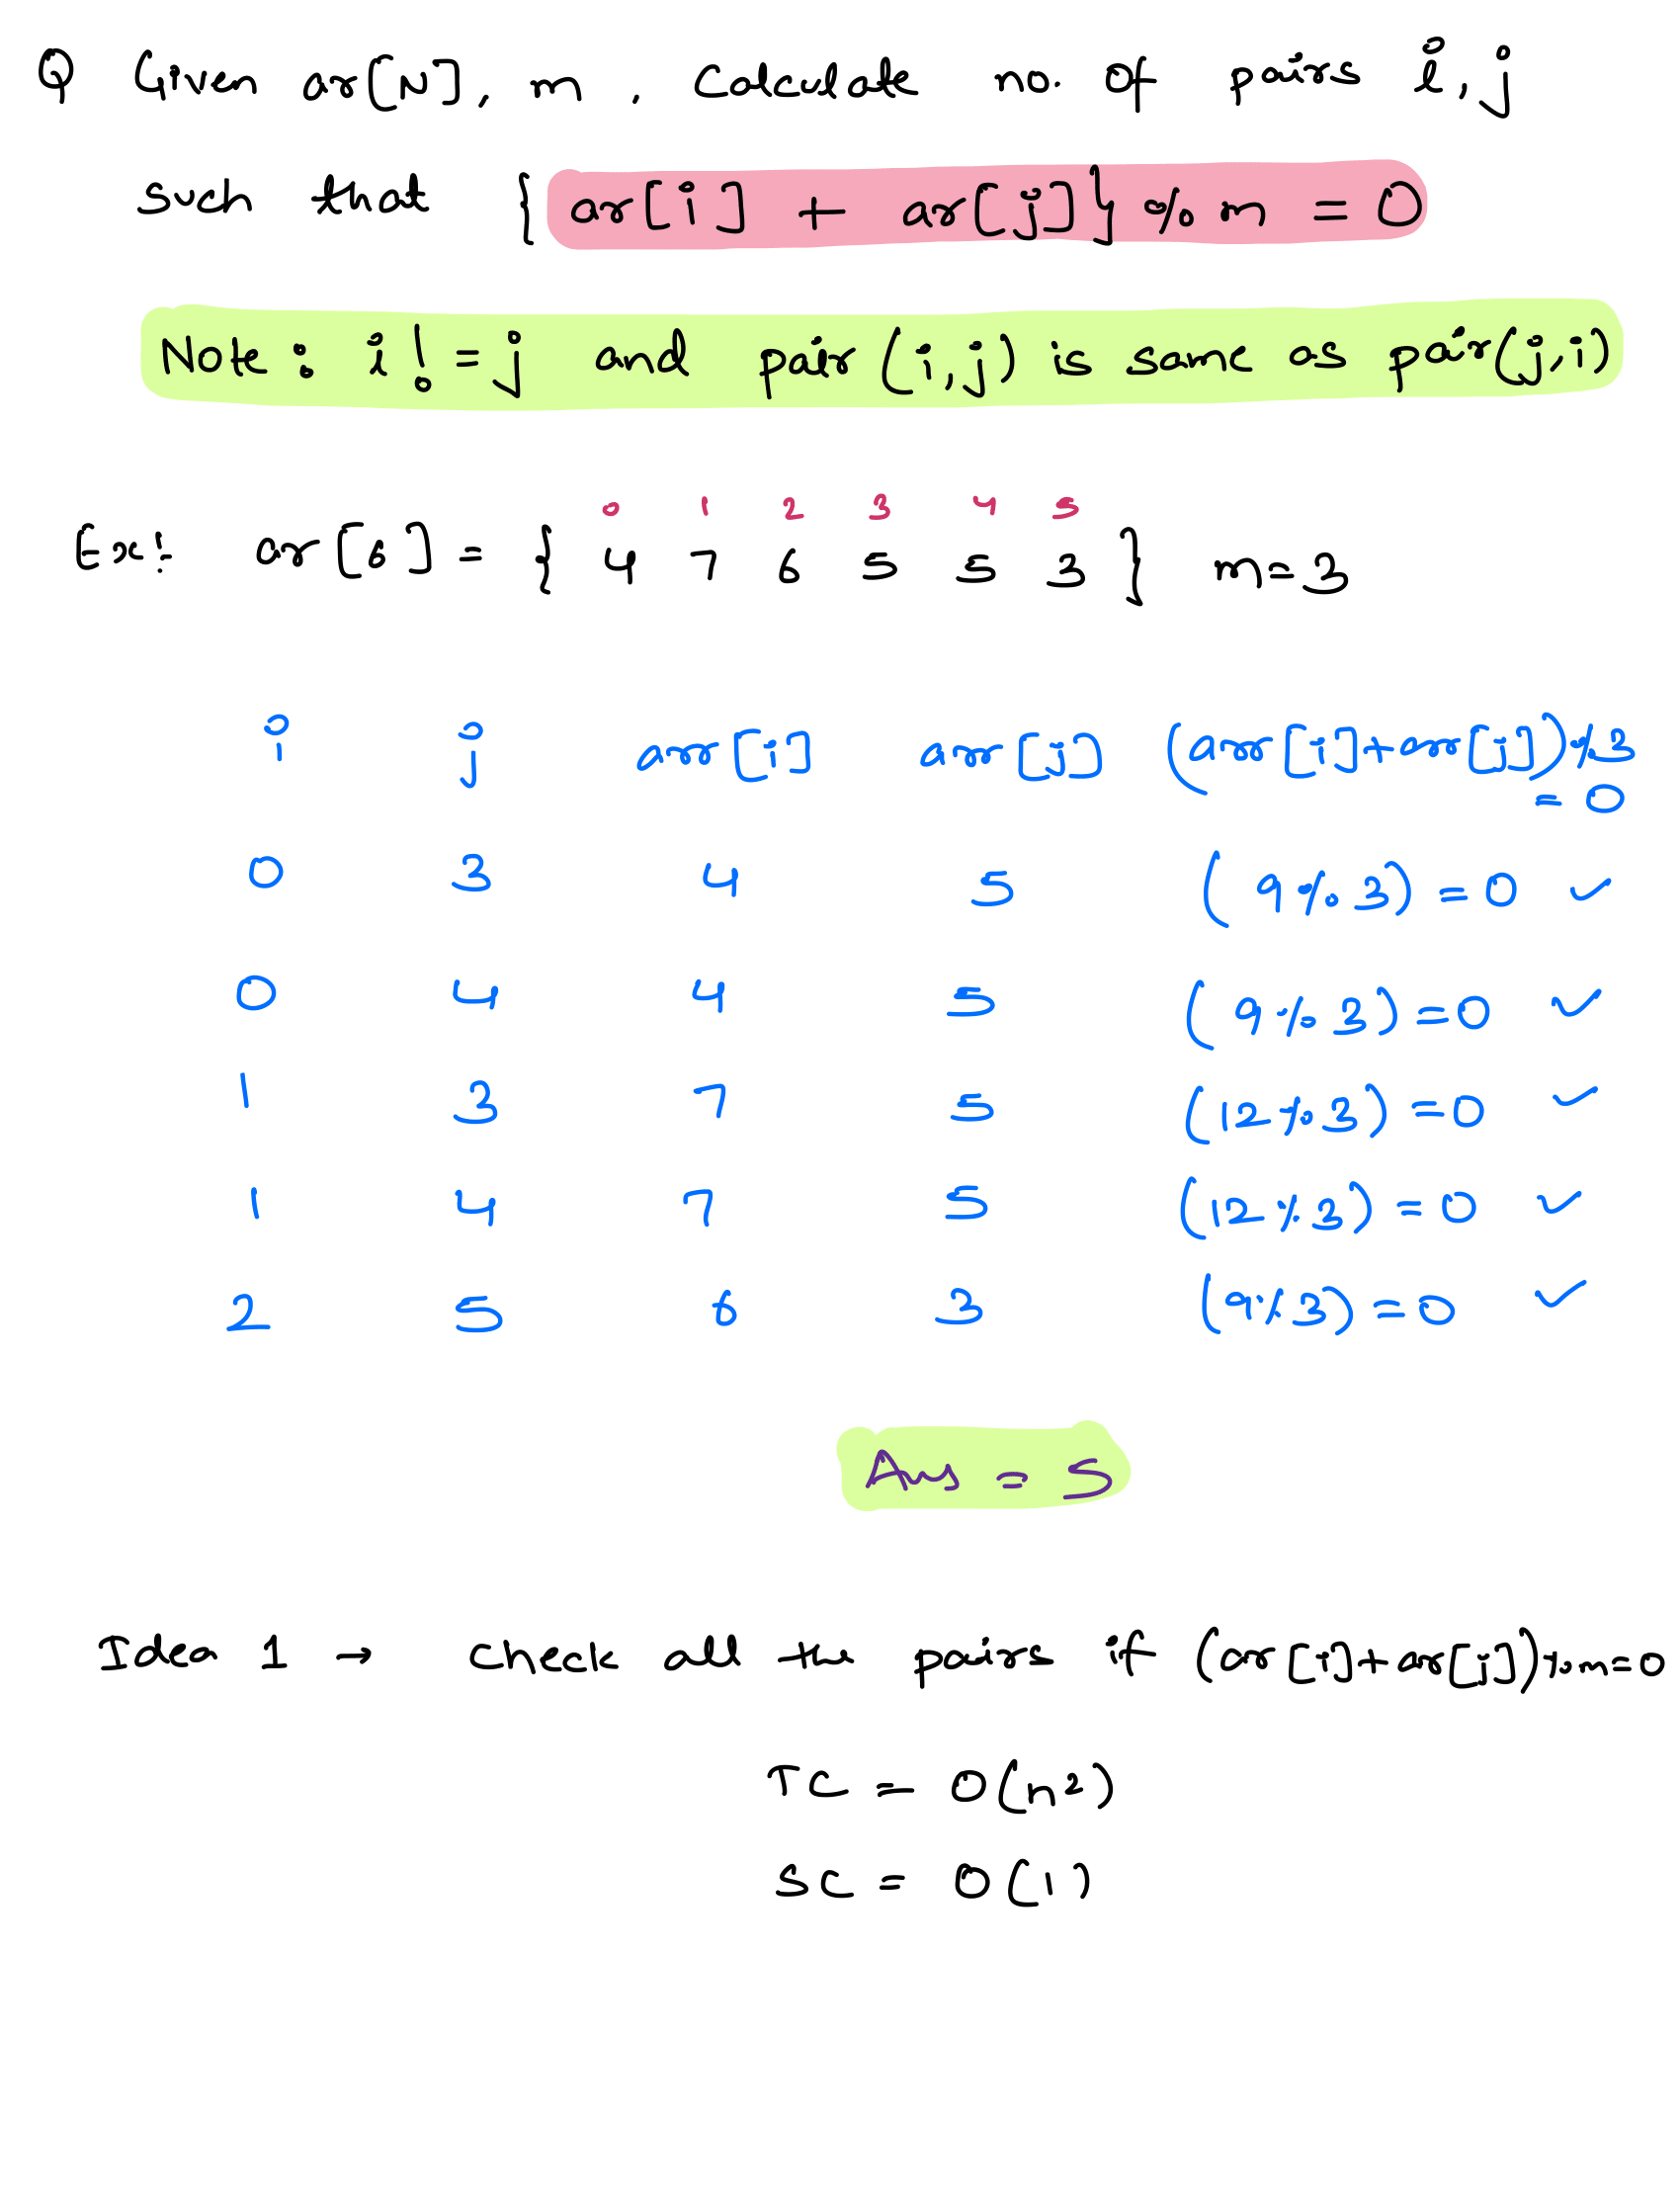 Q Given ar[N], m . Calculate no. of pairs i,j
such that { ar[i] + ar[j]} % m = 0
Note : i != j and pair (i,j) is same as pair(j,i)
0 1 2 3 4 5
Ex! ar[6] = { 4 7 6 5 5 3 } m=3
i j arr[i] arr[j] (arr[i]+arr[j])%3
= 0
0 3 4 5 (9%3) = 0 ✓
0 4 4 5 (9%3) = 0 ✓
1 3 7 5 (12%3) = 0 ✓
1 4 7 5 (12%3) = 0 ✓
2 5 6 3 (9%3) = 0 ✓
Ans = 5
Idea 1 → Check all the pairs if (ar[i]+ar[j])%m=0
TC = O(n²)
SC = O(1)